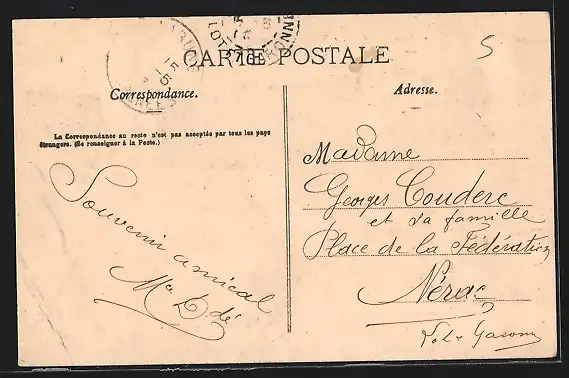 CARTE POSTALE
5
Correspondance.
Adresse.
La Correspondance au recto n'est pas acceptée par tous les pays
étrangers. (Se renseigner à la Poste.)
Madame
Georges Couderc
et sa famille
Place de la Fédération
Nérac
Souvenir amical